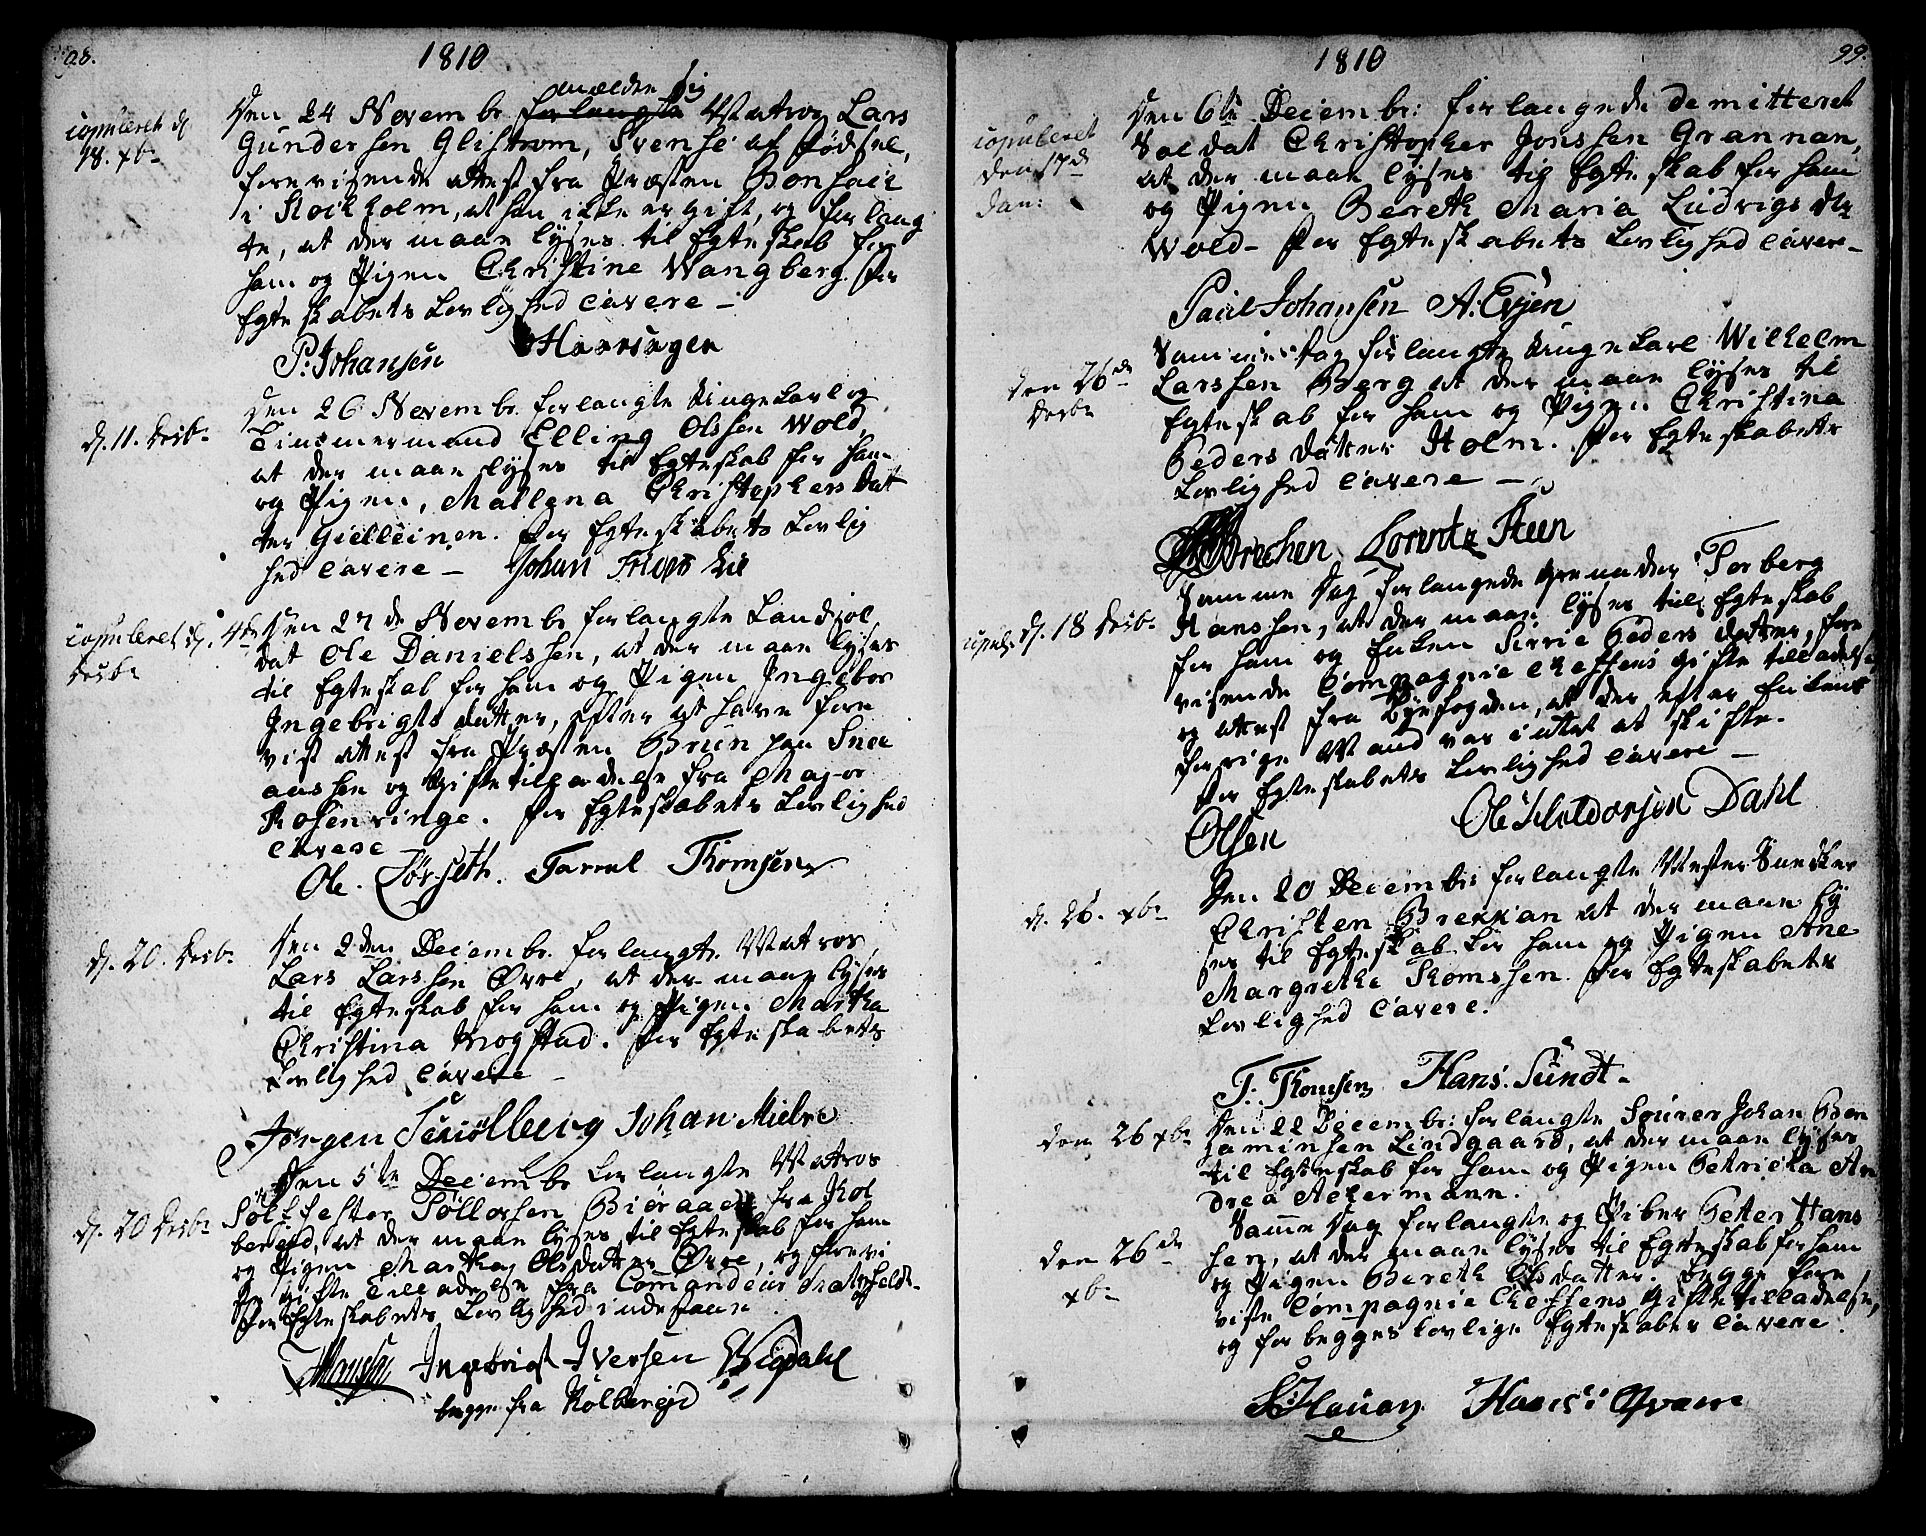 98.
1810
copuleret d
18. xbr
meldte sig
Den 24 Novembr. forlangte Matros Lars
Gundersen Glistrøm, Svensk af Fødsel,
forevisende Attest fra Præsten
i Stockholm, at han ikke er gift, og forlang
te, at der maae lyses til Egteskab for
ham og Pigen Christine Wangberg. For
Egteskabets Lovlighed cavere –
P. Johansen
d. 11. Desbr.
Den 26 Novembr. forlangte Ungekarl og
Timmermand Elling Olsen Wold,
at der maae lyses til Egteskab for ham
og Pigen, Mallena Christophers Dat
ter Gielleinen. For Egteskabets Lovlig
hed cavere – Johan
copuleret d. 4de
Desbr
Den 27de Novembr forlangte Landsol
dat Ole Danielssen, at der maae lyses
til Egteskab for ham og Pigen Ingebor
Ingebrigts datter, efter at have fore
vist Attest fra Præsten Bruun paa Snee
aassen og Giftetilladelse fra Major
Rosenvinge. For Egteskabets Lovlighed
cavere
Ole Thomsen
d. 20. Desbr.
Den 2den Decembr. forlangte Matros
Lars Larssen Øvre, at der maae lyses
til Egteskab for ham og Pigen Martha
Christina Mogstad. For Egteskabets
Lovlighed cavere –
Jørgen Johan Mielve
d. 20 Desbr
Den 5te Decembr forlangte Matros
fra Kol
bereid, at der maae lyses til Egteskab for ham
og Pigen Martha Olsdatter Øvre, og forevi
ste Gifte Tilladelse fra Comandeur
For Egteskabets Lovlighed indestaae
Ingebrigt Iversen
begge fra Kolberejd
99.
1810
copuleret
den 17d
Jan:
Den 6te Decembr: forlangede demitteret
Soldat Christopher Jonssen Grannan,
at der maae lyses til Egteskab for ham
og Pigen Bereth Maria Ludvigs dtr
Wold – For Egteskabets Lovlighed cavere –
Paul Johansen A. Evjen
den 26de
Desbr
Samme Dag forlangte Ungekarl Wilhelm
Larssen Berg at der maae lyses til
Egteskab for ham og Pigen Christina
Peders datter Holm. For Egteskabets
Lovlighed cavere –
Lorentz Steen
copul. d. 18 Desbr.
Samme Dag forlangede Grenader Torberg
Hanssen, at der maae lyses til Egteskab
for ham og Enken Sirrie Peders datter, fore
visende Compagnie Cheffens Gifte tilladelse
og Attest fra Byefogden, at der efter Enkens
forrige Mand var intet at skifte.
For Egteskabets Lovlighed cavere –
Olsen Ole Haldorsen Dahl
d. 26. xbr
Den 20 Decembr: forlangte Mester Snedker
Christen Brekkan at der maae ly
ses til Egteskab for ham og Pigen Ane
Margrethe Thomssen. For Egteskabets
Lovlighed cavere.
T. Thomsen Hans Sundt.
den 26 xbr
Den 22 Decembr: forlangte Johan Ben
jaminsen Lindgaard, at der maae lyses
til Egteskab for ham og Pigen Petricka An
drea Ackermann.
den 26de
xbr
Samme Dag forlangte og Piber Petter Hans
sen, at der maae lyses til Egteskab for ham
og Pigen Bereth Olsdatter. Begge fore
viste Compagnie Cheffens Giftetilladelse,
og for begges lovlige Egteskaber cavere.